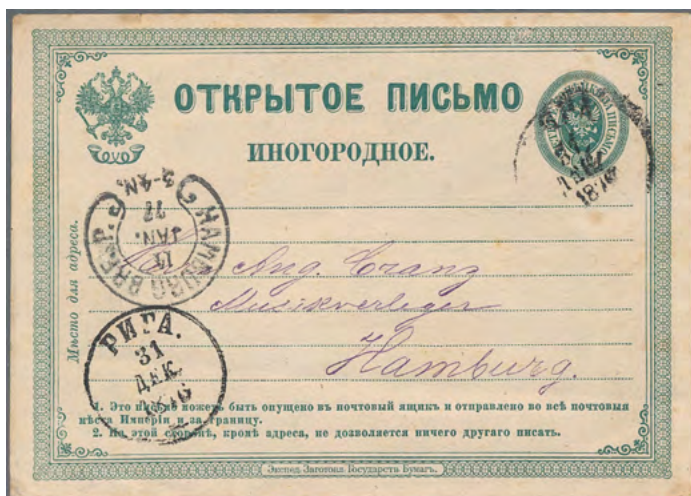 ОТКРЫТОЕ ПИСЬМО
ИНОГОРОДНОЕ.
Мѣсто для адреса.
HAMBURG
JAN.
77
Aug. Cranz
Musikverleger
Hamburg.
РИГА.
31
ДЕК.
1876
1. Это письмо можетъ быть опущено въ почтовый ящикъ и отправлено во всѣ почтовыя
мѣста Имперіи и за границу.
2. На этой сторонѣ, кромѣ адреса, не дозволяется ничего другаго писать.
Экспед. Заготовл. Государств. Бумагъ.